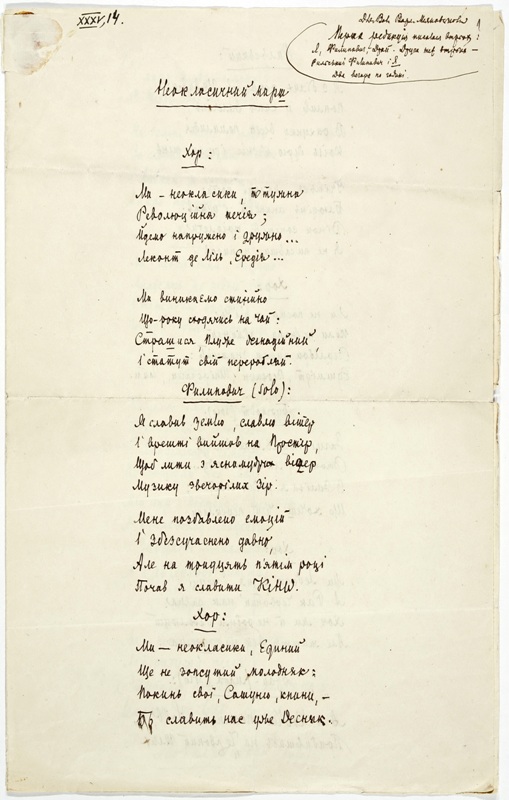 XXXV, 14.
1
Перша редакція писалась втрьох:
Я, Филипович, Драй. Друга теж втрьох —
Рильський Филипович і Я.
Два вечори по годині
Неокласичний марш
Хор:
Ми — неокласики, потужна
Революційна течія;
Йдемо напружено і дружно...
Леконт де Ліль, Ередія...
Ми виникаємо стихійно
Що-року сходячись на чай:
Страшися, Плуже безнадійний,
І статут свій переробляй.
Филипович (Solo):
Я славив Землю, славлю вітер
І врешті вийшов на Простір,
Щоб лити з ясномудрих віщер
Музику звечорілих Зір.
Мене позбавлено емоцій
І збезсучаснено давно,
Але на тридцять п'ятім році
Почав я славити Кіно.
Хор:
Ми — неокласики, Єдиний
Ще не запсутий молодняк:
Покинь свої, Сашуню, кпини, —
славить нас уже Десняк.